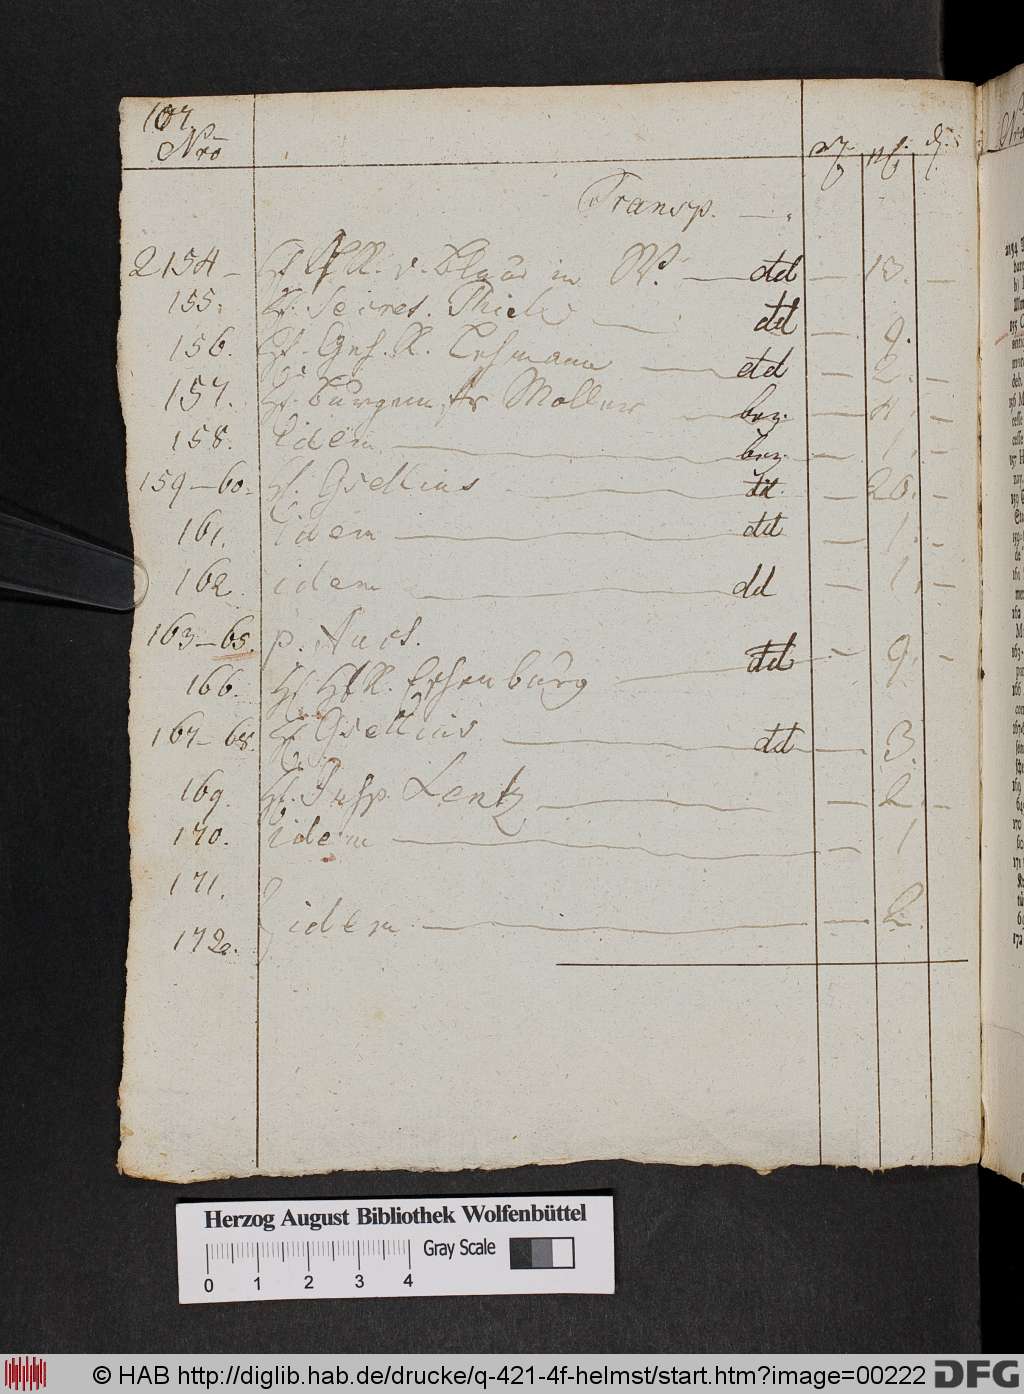 107.
Nro
Transp. — .
2154 — H. v. in W. — dd — 13. —
155. H. Secret. Thiele — dd — 9.
156. H. Geh. R. Lehmann — dd — 2. —
157. H. Burgem str Moller — bez. —
158. idem — bez. — 1. —
159—60. H. Gsellius — dd. — 20. —
161. idem — dd — 1. —
162. idem — dd — 1. —
163—65. p. Auct. — dd — 9. —
166. H. HfR. Eschenburg
167—68. H. Gsellius — dd — 3.
169. H. Insp. Lentz — 2 —
170. idem — 1
171.
idem — 2.
172.
Herzog August Bibliothek Wolfenbüttel
Gray Scale
0 1 2 3 4
© HAB http://diglib.hab.de/drucke/q-421-4f-helmst/start.htm?image=00222
DFG